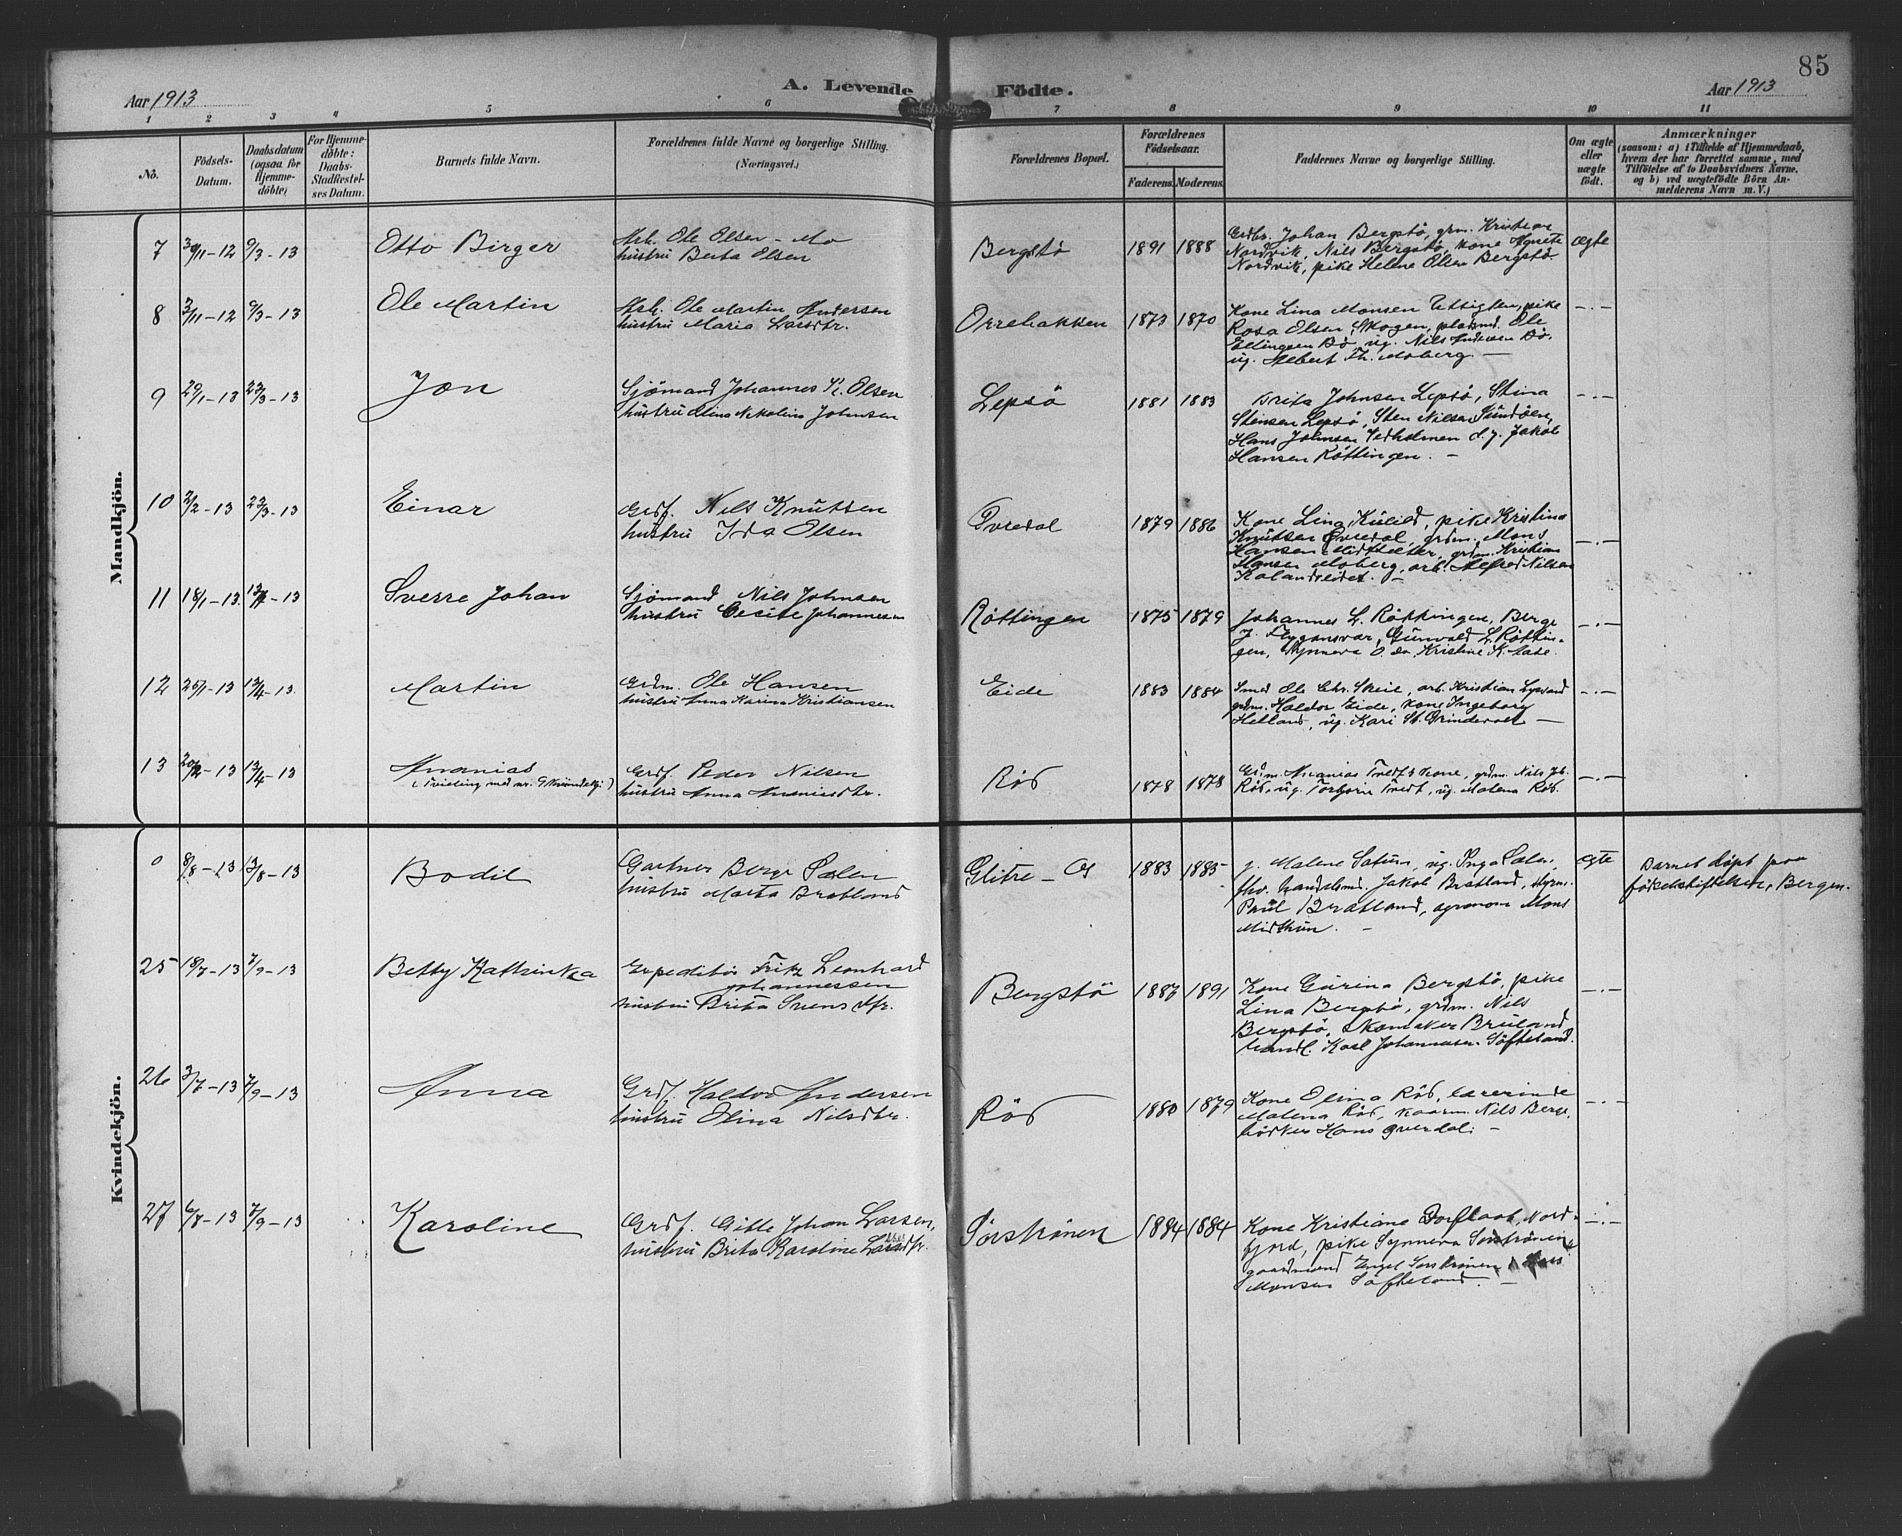 85
Aar 1913
A. Levende Födte.
Aar 1913
1 2 3 4 5 6 7 8 9 10 11
No.
Födsels-Datum.
Daabsdatum (ogsaa for Hjemme-döbte)
For Hjemme-döbte: Daabs-Stadfæstel-ses Datum.
Barnets fulde Navn.
Forældrenes fulde Navne og borgerlige Stilling.
(Næringsvei.)
Forældrenes Bopæl.
Forældrenes Födselsaar.
Faderens.
Moderens.
Faddernes Navne og borgerlige Stilling.
Om ægte eller uægte födt.
Anmærkninger
(saasom: a) i Tilfælde af Hjemmedaab,
hvem der har forrettet samme, med
Tilföielse af to Daabsvidners Navne,
og b) ved uægtefödte Börn An-
melderens Navn m. V.)
Mandkjön.
7 30/11-12 9/3-13 Otto Birger
Arb. Ole Olsen - Mo
hustru Berta Olsen
Bergstö 1891 1888
Grdbr. Johan Bergstö, grm. Kristian
Nordvik, Nils Bergstö, kone Agnete
Nordvik, pike Helene Olsen Bergstö
ægte
8 3/11-12 9/3-13 Ole Martin
Arb. Ole Martin Andersen
hustru Maria Larsdtr.
Orrebakken 1873 1870
Kone Lina Monsen, pike
Rosa Olsen Skogen, pladsmd. Ole
Ellingsen Bö, ug. Nils Andersen Bö,
ug. Albert Th. Moberg -
-.-
9 29/1-13 23/3-13 Jon
Sjömand Johannes K. Olsen
hustru Alina Nikolina Johnsen
Lepsö 1881 1883
Brita Johnsen Lepsö, Stina
Stensen Lepsö, Sten Nilsen Sundöen,
Hans Johnsen Vedholmen d.y. Jakob
Hansen Röttingen. -
-.-
10 2/2-13 23/3-13 Einar
Grdf. Nils Knutsen
hustru Ida Olsen
Övredal 1879 1886
Kone Lina Kulild, pike Kristina
Knutsen Övredal, grdm. Mons
Hansen Midtsæter, grdm. Kristian
Hansen Moberg, arb. Alfred Nilsen
Kalandseidet. -
-.-
11 18/1-13 13/4-13 Sverre Johan
Sjömand Nils Johnsen
hustru Cecilie Johannesen
Röttingen 1875 1879
Johannes L. Röttingen, Berge
J. Flygansvær, Gunvald L. Röttin-
gen, Synneva O. do, Kristine K. Aase.
-.-
12 25/1-13 13/4-13 Martin
Grdm. Ole Hansen
hustru Anna Karina Kristiansen
Eide 1883 1884
Smed Ole Chr. Skeie, arb. Kristian Lysand
grdm. Haldor Eide, kone Ingeborg
Hetland, ug. Kari St. Grindevoll -
-.-
13 20/2-13 13/4-13 Ananias
(Tvilling med nr. 9 Kvindekj.)
Grdf. Peder Nilsen
hustru Anna Ananiasdtr.
Röd 1878 1878
Grdm. Ananias Tveit & kone, grdm. Nils Joh.
Röd, ug. Torbjörn Tveit, ug. Malena Röd.
-.-
Kvindekjön.
0 8/8-13 13/8-13 Bodil
Gartner Berge Sælen
hustru Marta Bratland
Glitre - Os 1883 1885
g. Malene Sælen, ug. Inga Sælen,
fhv. handelsmd. Jakob Bratland, styrm.
Paul Bratland, agronom Mons
Midthun. -
ægte
Barnet döpt paa
födselsstiftelsen, Bergen.
25 18/7-13 7/9-13 Betty Kathinka
Expeditör Fritz Leonhard
Johannessen
hustru Brita Svensdtr.
Bergstö 1887 1891
Kone Gurina Bergstö, pike
Lina Bergstö, grdm. Nils
Bergstö, Skomaker Bruland,
handl. Karl Johannesen Söfteland.
-.-
26 3/7-13 7/9-13 Anna
Grdf. Haldor Andersen
hustru Olina Nilsdtr.
Röd 1880 1879
Kone Olina Röd, lærerinde
Malena Röd, kaarm. Nils Berge,
bödker Hans Överdal. -
-.-
27 6/8-13 7/9-13 Karoline
Grdf. Gitle Johan Larsen,
hustru Brita Karoline Larsdtr.
Sörströnen 1884 1884
Kone Kristiane Dorflaat, Nord-
fjord, pike Synneva Sörströnen,
gaardmand Engel Sörströnen,
Monsen Söfteland. -
-.-